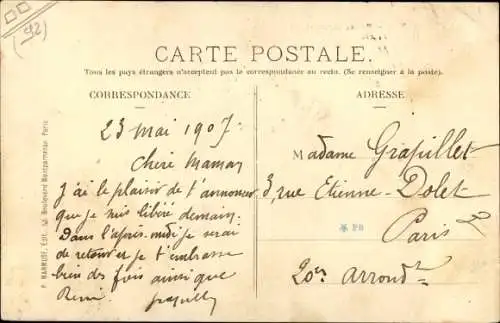 (92)
CARTE POSTALE.
Tous les pays étrangers n'acceptent pas la correspondance au recto. (Se renseigner à la poste).
CORRESPONDANCE
23 mai 1907.
Chère Maman
J'ai le plaisir de t'annoncer
que je suis libéré demain.
Dans l'après-midi je serai
de retour et je t'embrasse
bien des fois ainsi que
René.
ADRESSE
Madame Grapillet
3, rue Etienne-Dolet
Paris
20es arrondt
P. MARMUSE, Edit. Boulevard Montparnasse. Paris